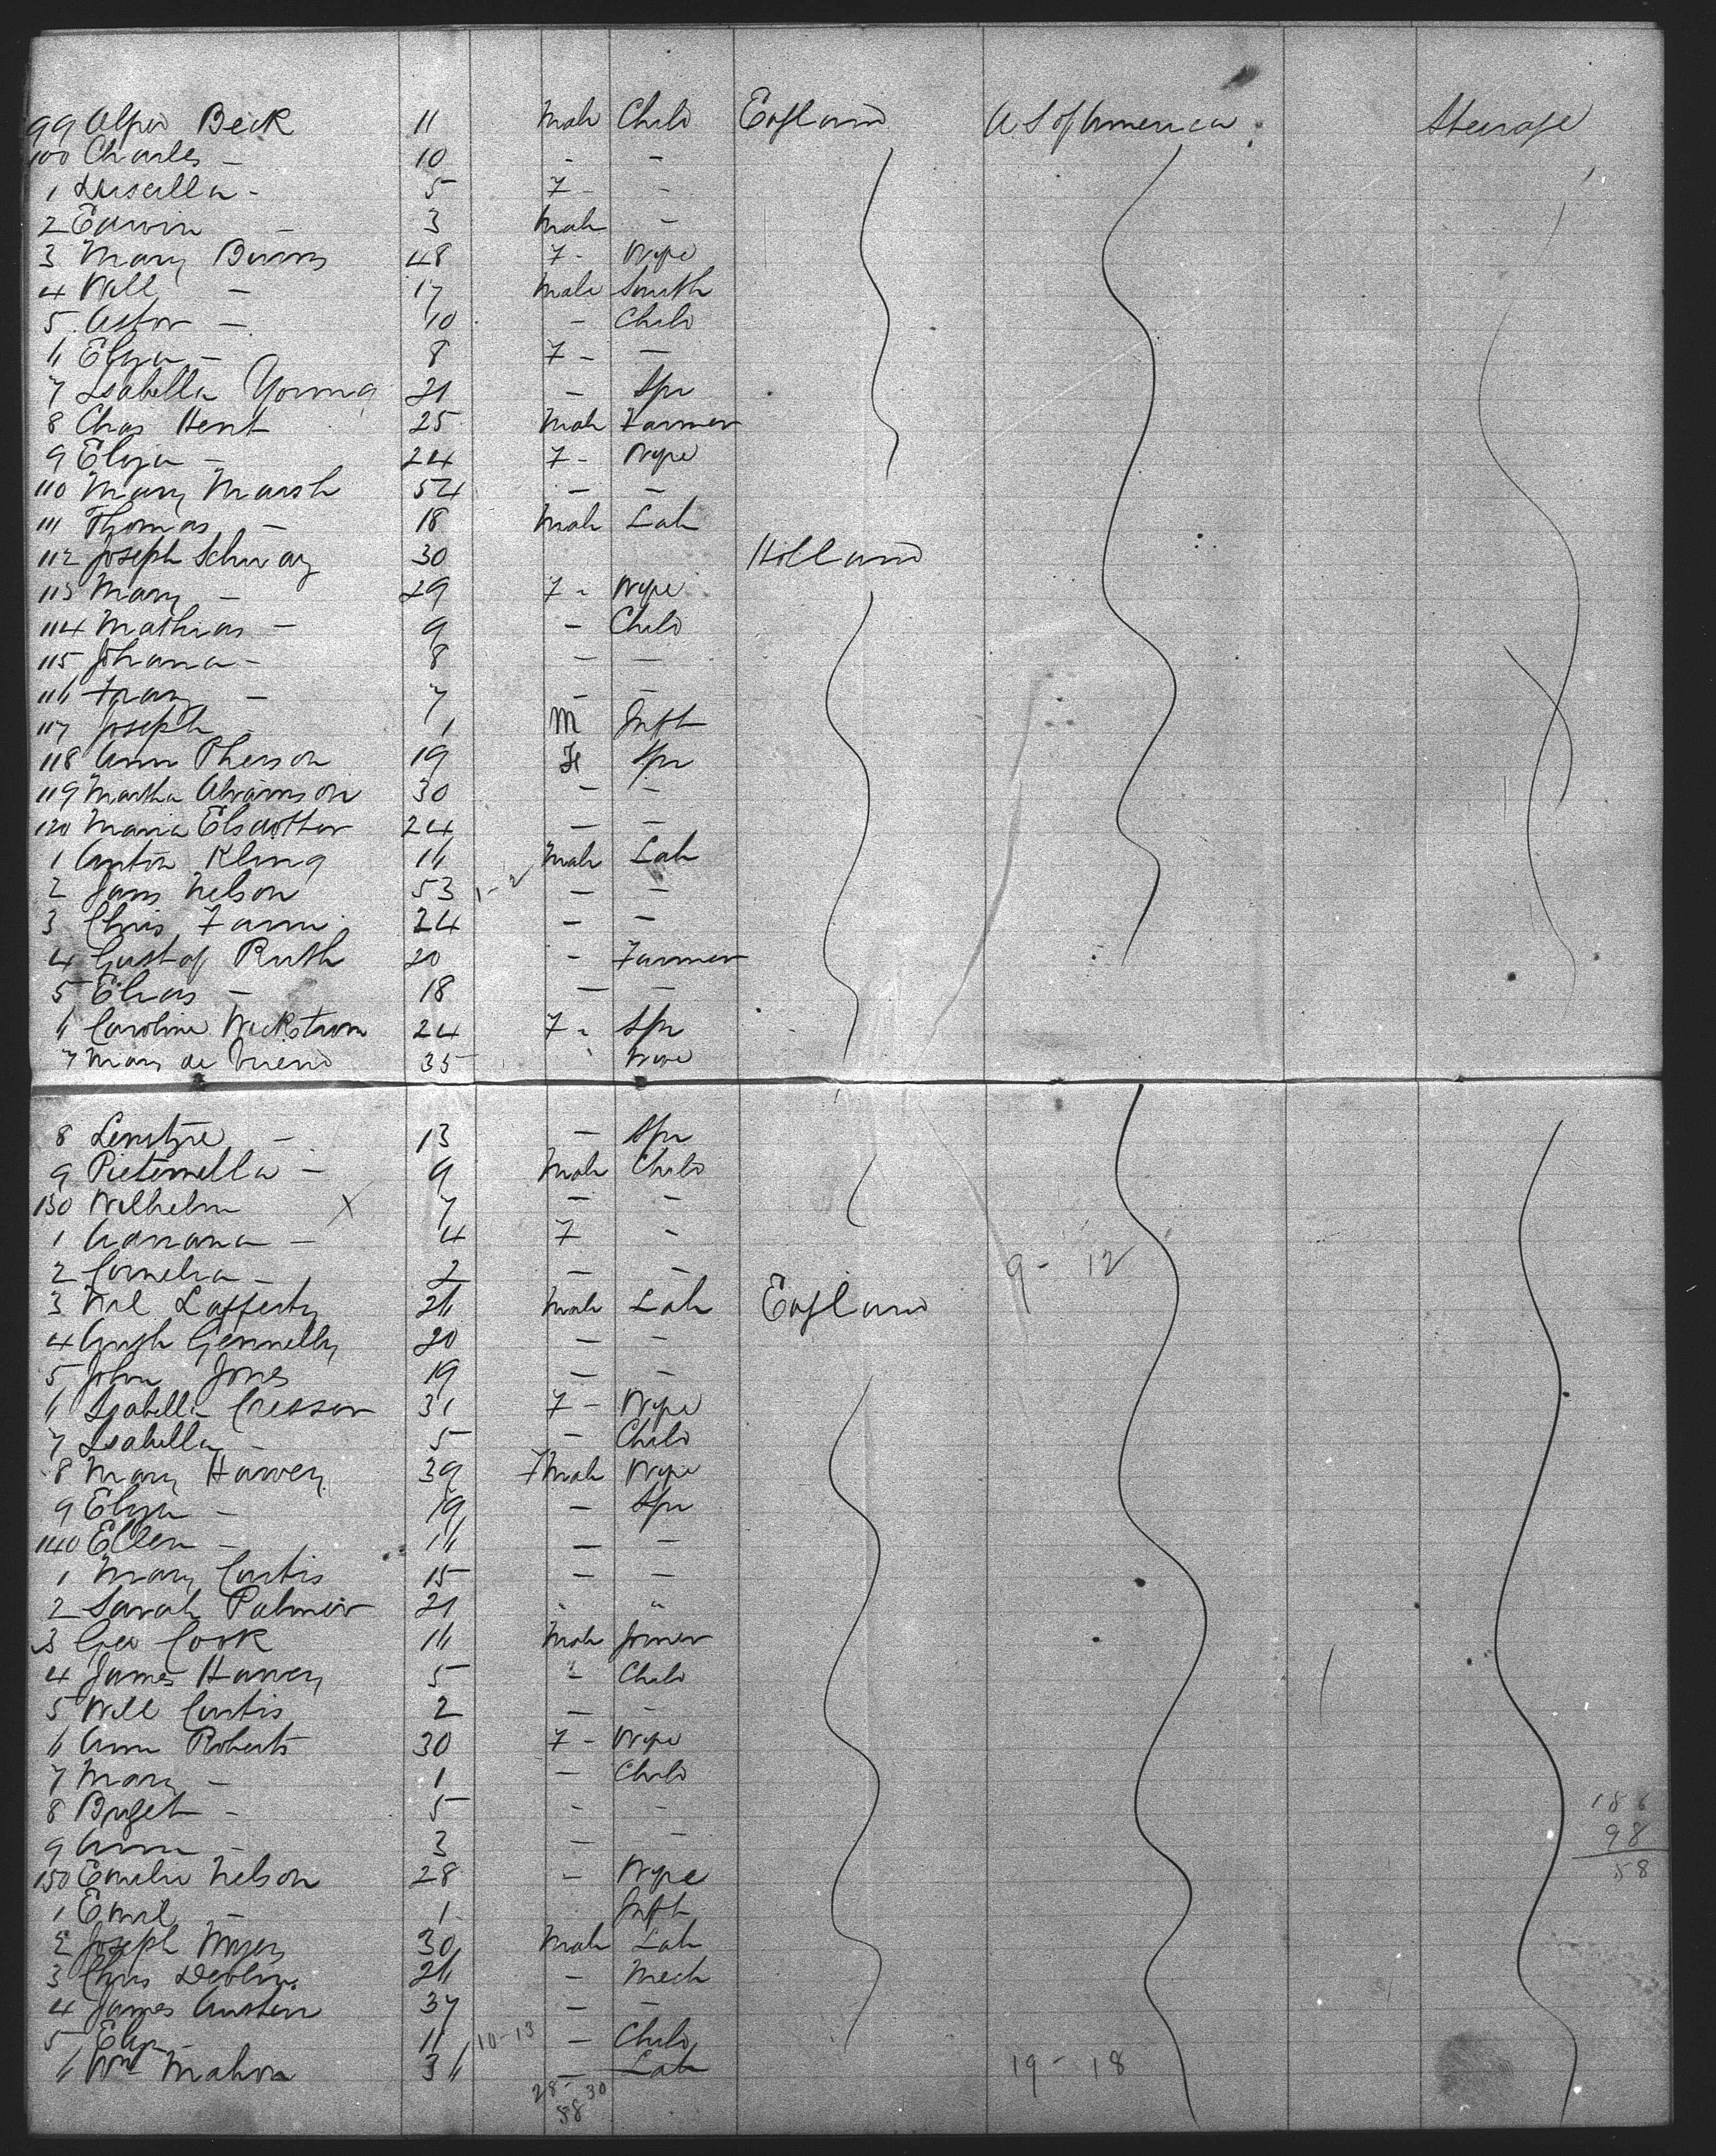 99 Alfred Beck 11 Male Child England U S of America Steerage
100 Charles - 10 - -
1 Druscilla - 5 F - -
2 Edwin - 3 Male -
3 Mary Burns 48 F - Wife
4 Will - 17 Male Smith
5 Astor - 10 - Child
6 Eliza - 8 F - -
7 Isabella Young 21 - Spr
8 Chas Hent 25 Male Farmer
9 Eliza - 24 F - Wife
110 Mary Marsh 54 - -
111 Thomas - 18 Male Lab
112 Joseph Schwarz 30 Holland
113 Mary - 29 F - Wife
114 Mathias - 9 - Child
115 Johana - 8 - -
116 Franz - 7 - -
117 Joseph - 1 M Inft
118 Ann Pherson 19 Fe Spr
119 Martha Abramson 30 - -
120 Maria Elsdotter 24 - -
1 Anton Kling 16 Male Lab
2 Jans Nelson 53 1-2 - -
3 Chris 24 - -
4 Gustaf Ruth 20 - Farmer
5 Elias - 18 - -
6 Caroline Wickstrom 24 F - Spr
7 Mary de 35 " Wife
8 - 13 - Spr
9 Pieternella - 9 Male Child
130 Wilhelm X 7 - -
1 Adriana - 4 F -
2 Cornelia - 2 - - 9 - 12
3 Wil Lafferty 26 Male Lab England
4 Hugh Gennelly 20 - -
5 John Jones 19 - -
6 Isabella Cresser 31 F - Wife
7 Isabella - 5 - Child
8 Mary Harvey 39 F Male Wife
9 Eliza - 19 - Spr
140 Ellen - 16 - -
1 Mary Curtis 15 - -
2 Sarah Palmer 21 " "
3 Geo Cook 16 Male Joiner
4 James Harvey 5 " Child
5 Will Curtis 2 - -
6 Ann Roberts 30 F - Wife
7 Mary - 1 - Child
8 Briget - 5 - - 186
9 Ann - 3 - - 98
150 Emelie Nelson 28 - Wife 58
1 Emil - 1 Inft
2 Joseph Myers 30 Male Lab
3 Chris Devlin 26 - Mech
4 James Austin 37 - -
5 Eliza 11 10-13 - Child
6 Wm Mahon 36 - Lab 19 - 18
28 - 30
58